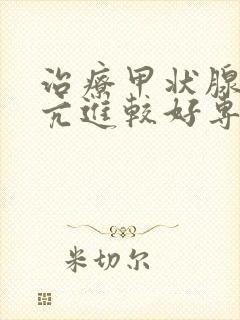 治療甲状腺
亢進較好専
米切尔